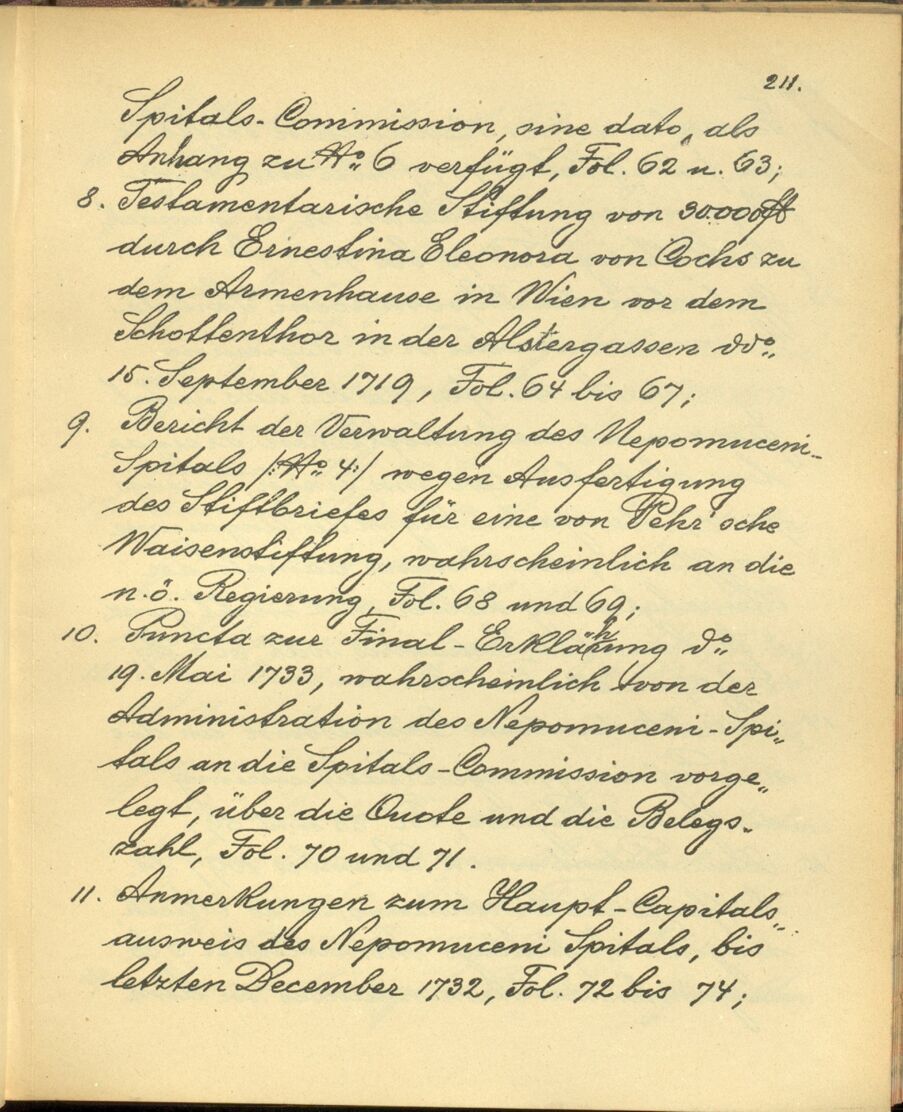 211.
Spitals-Commission, sine dato, als
Anhang zu No 6 verfügt, Fol. 62 u. 63;
8. Testamentarische Stiftung von 30.000 fl
durch Ernestina Eleonora von Cochs zu
dem Armenhause in Wien vor dem
Schottenthor in der Alstergassen ddo
15. September 1719, Fol. 64 bis 67;
9. Bericht der Verwaltung des Nepomuceni-
Spitals /:No 4:/ wegen Ausfertigung
des Stiftbriefes für eine von Pehr'sche
Waisenstiftung, wahrscheinlich an die
n.ö. Regierung, Fol. 68 und 69;
10. Puncta zur Final-Erklährung do
19. Mai 1733, wahrscheinlich von der
Administration des Nepomuceni-Spi„
tals an die Spitals-Commission vorge„
legt, über die Quote und die Belegs„
zahl, Fol. 70 und 71.
11. Anmerkungen zum Haupt-Capitals„
ausweis des Nepomuceni Spitals, bis
letzten December 1732, Fol. 72 bis 74;